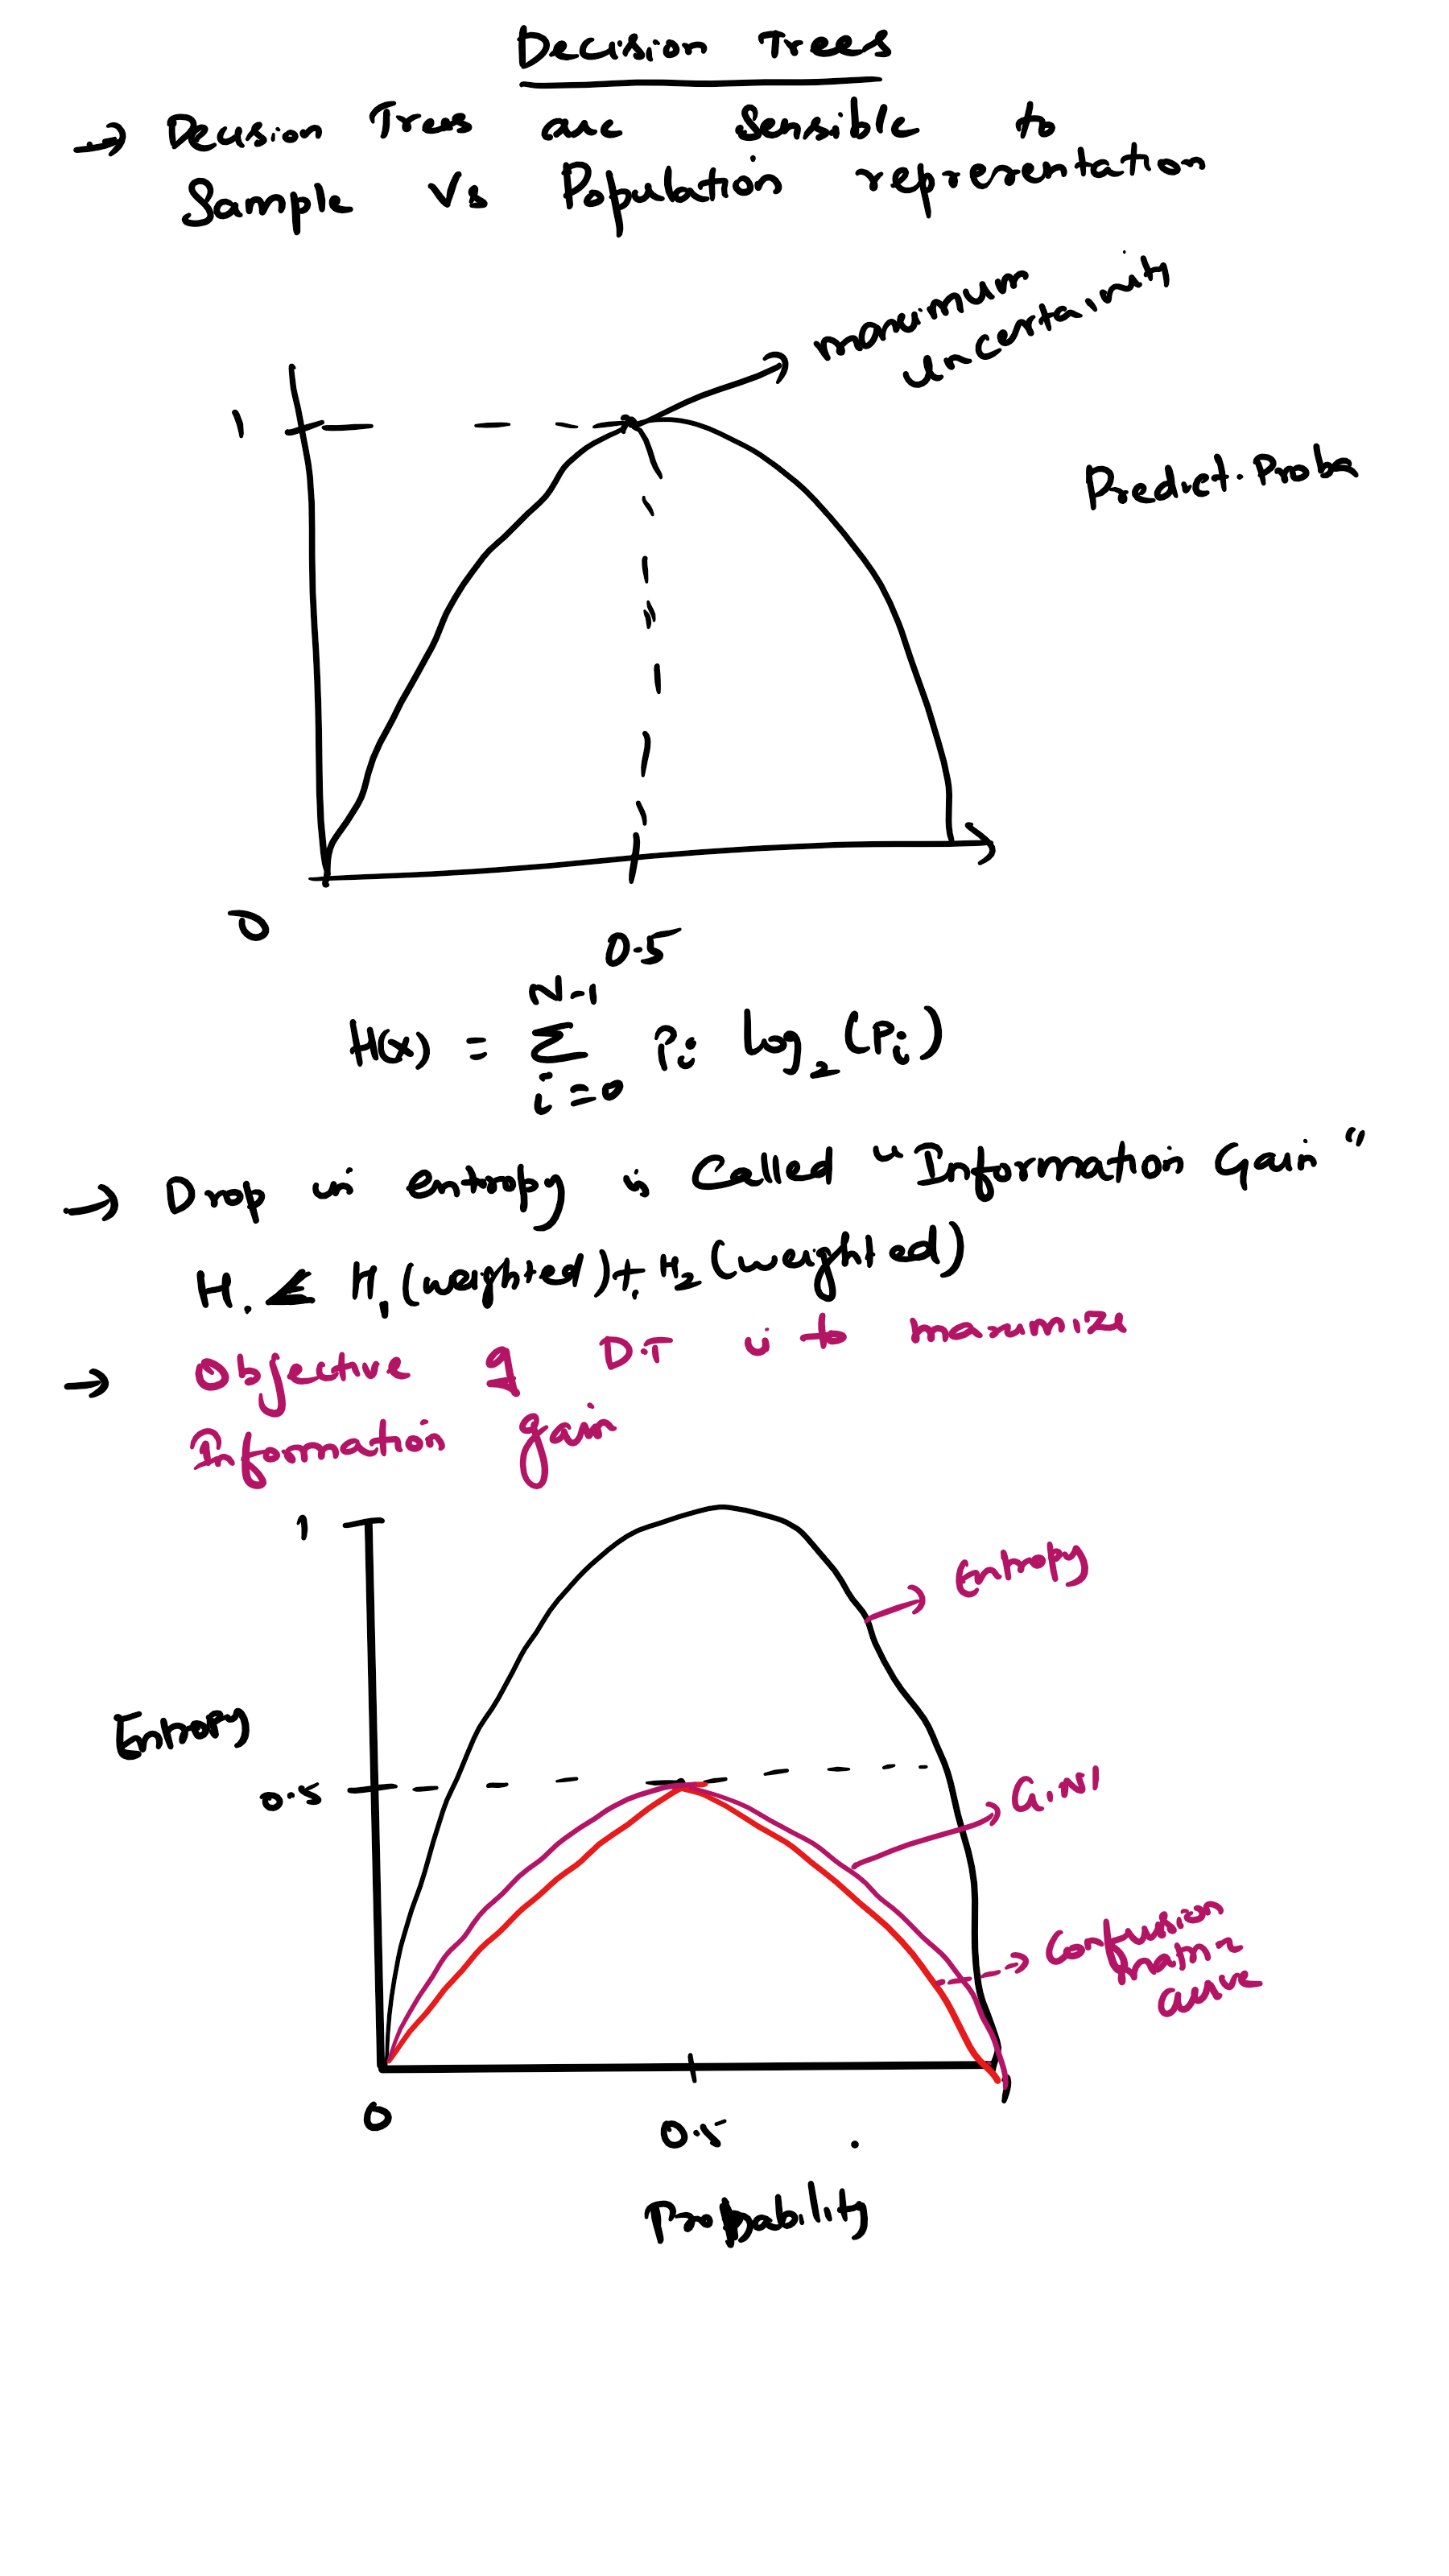 Decision Trees
→ Decision Trees are Sensible to
Sample Vs Population representation
maximum
uncertainity
1
Predict.Proba
0
0.5
H(x) = N-1 Σ i=0 Pi log2 (Pi)
→ Drop in entropy is Called "Information Gain"
H. ≤ H1 (weighted) + H2 (weighted)
→ Objective of D.T is to maximize
Information gain
1
Entropy
Entropy
0.5
G.N1
Confusion
matrix
curve
0
0.5
Probability